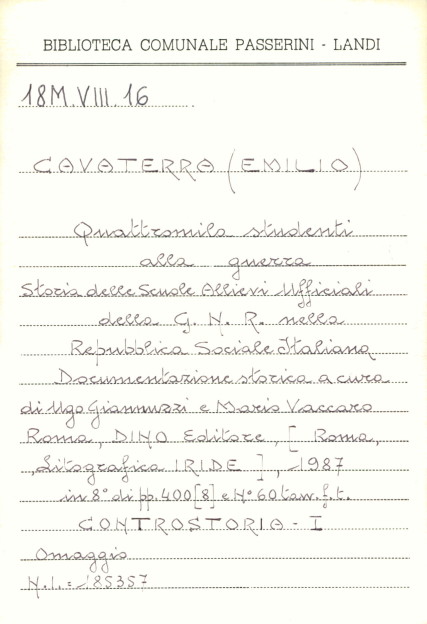 BIBLIOTECA COMUNALE PASSERINI - LANDI
18M.VIII.16
CAVATERRA (EMILIO)
Quattromila studenti
alla guerra
Storia delle Scuole Allievi Ufficiali
della G. N. R. nella
Repubblica Sociale Italiana
Documentazione storica a cura
di Ugo Giannuzzi e Mario Vaccaro
Roma, DINO Editore, [ Roma,
Litografica IRIDE ], 1987
in 8° di pp. 400 [8] e N° 60 tav. f. t.
CONTROSTORIA - I
Omaggio
N.I. = 185357